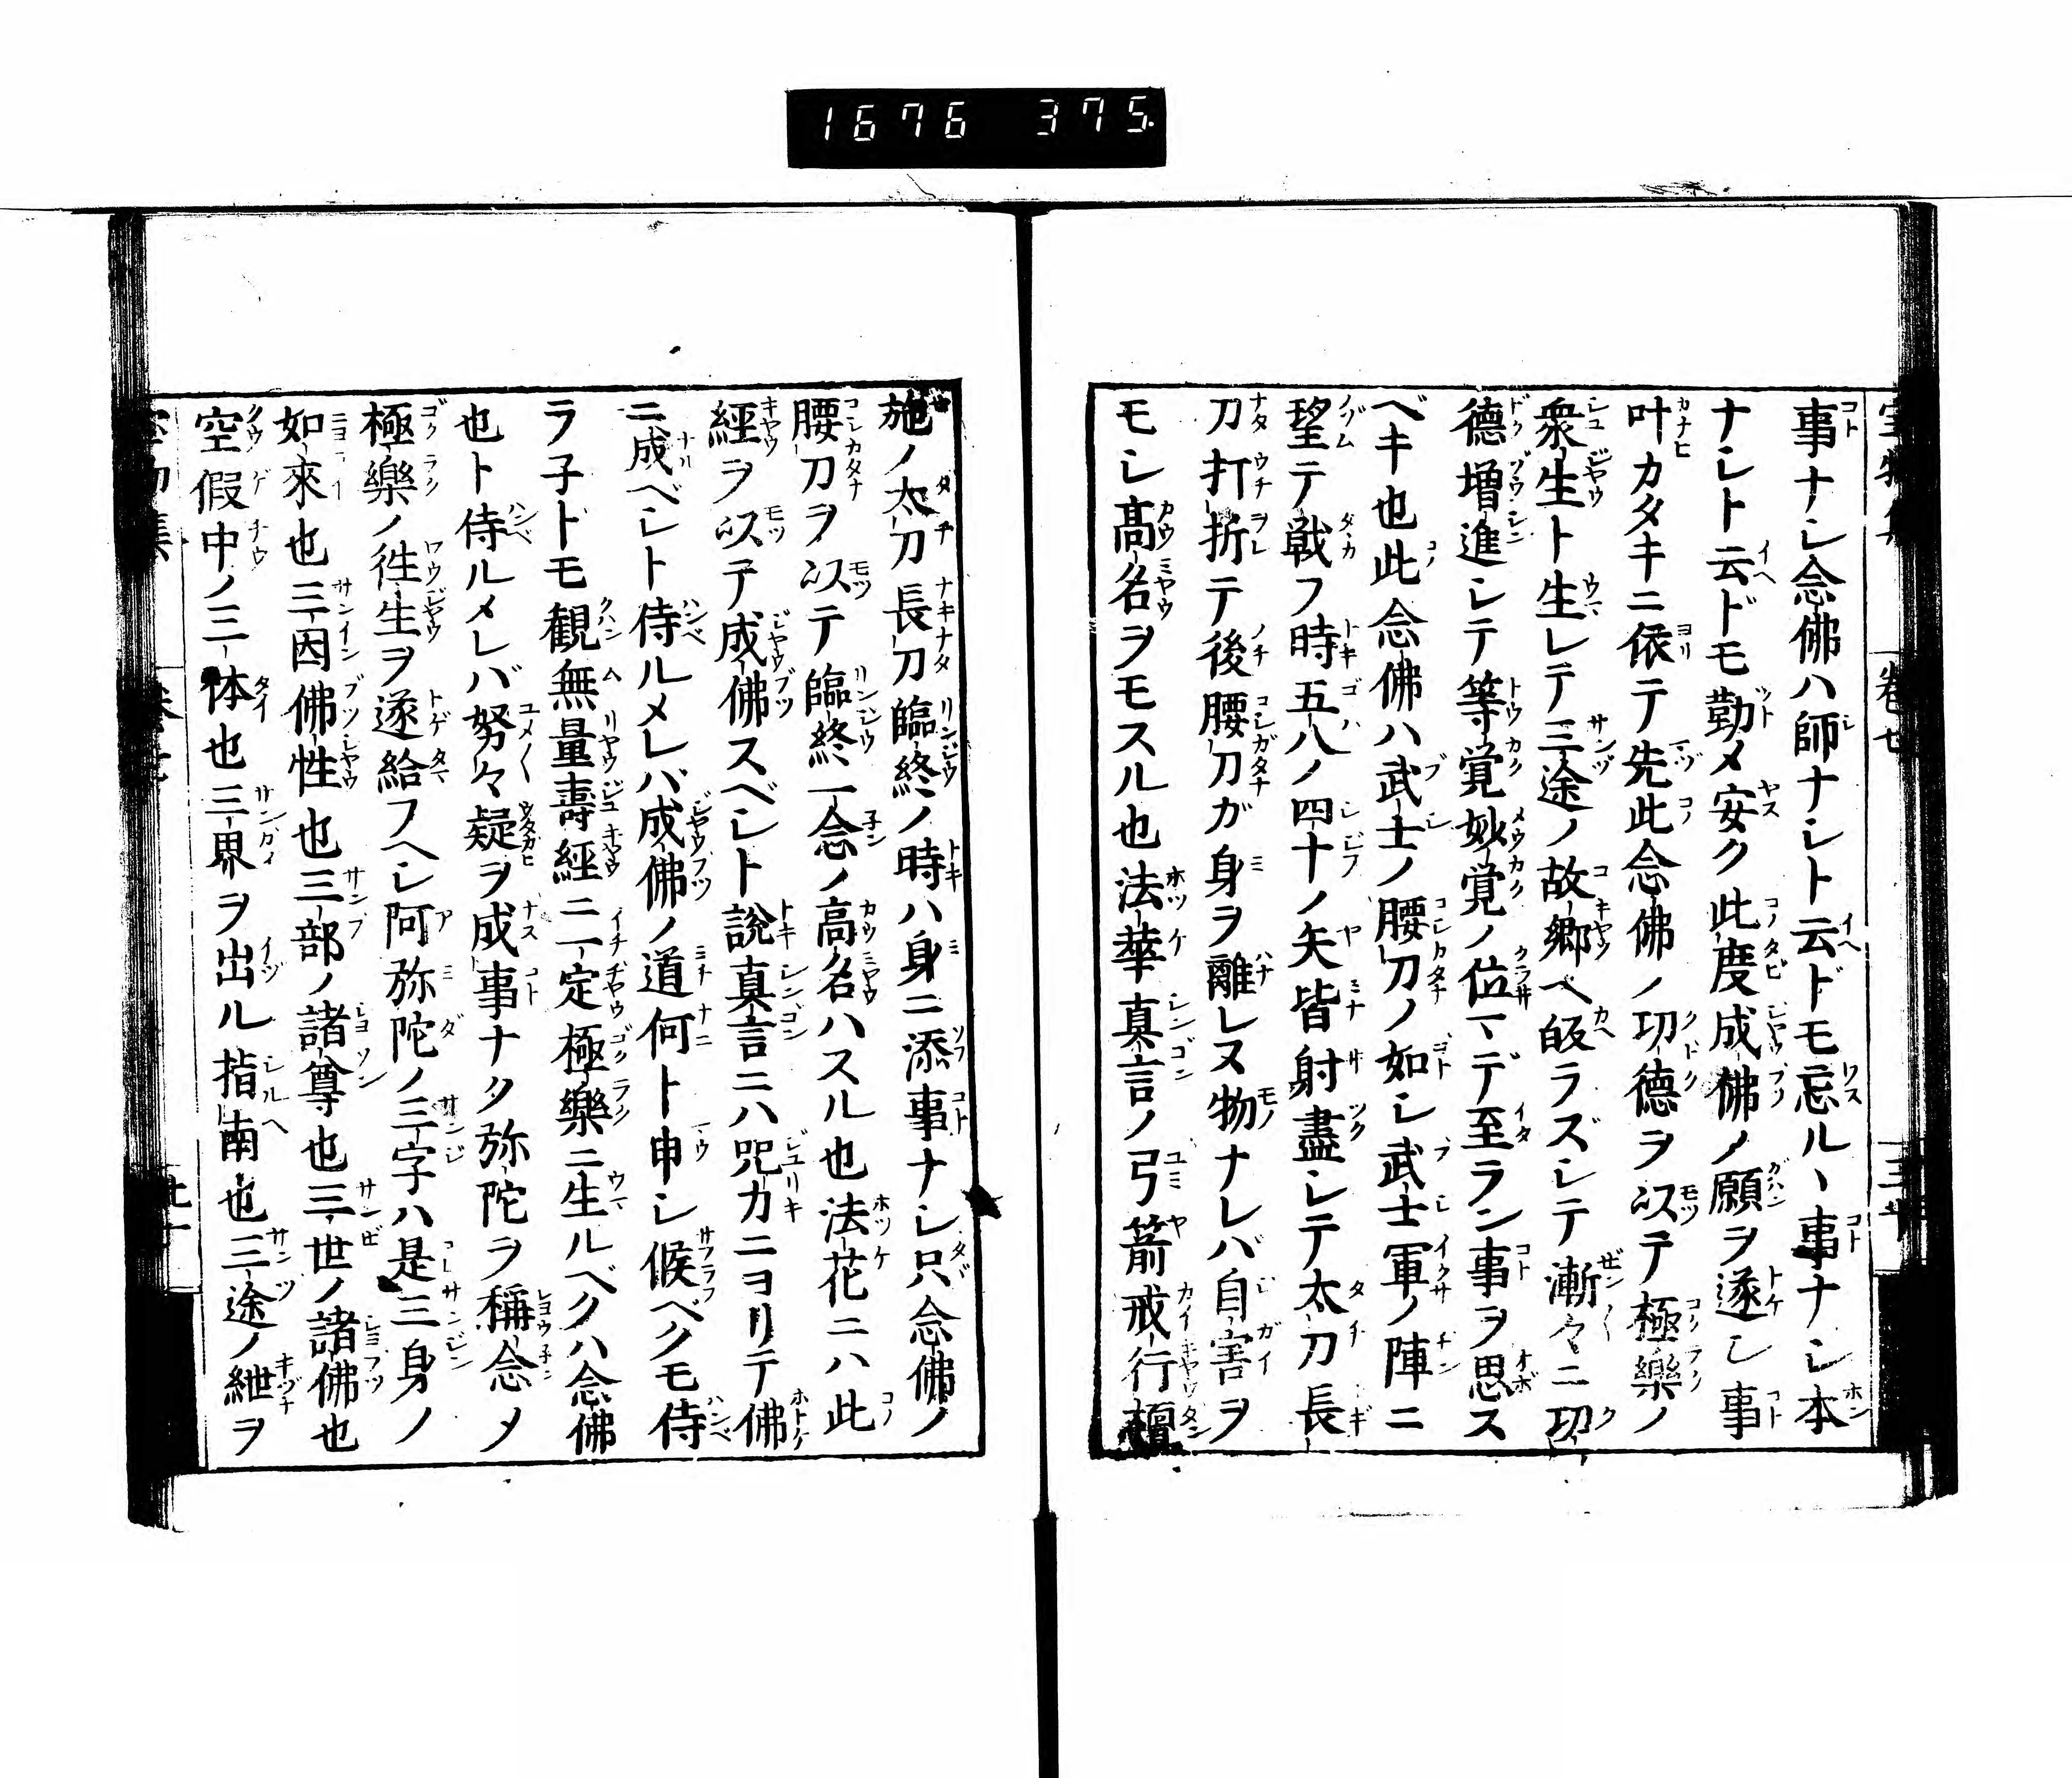 1676 375.
事ナシ念佛ハ師ナシト云ドモ忘ルヽ事ナシ本
ナシト云ドモ勤メ安ク此度成佛ノ願ヲ遂シ事
叶カタキニ依テ先此念佛ノ功德ヲ以テ極樂ノ
衆生ト生レテ三途ノ故郷ヘ皈ラズシテ漸々ニ功
德増進シテ等覚妙覚ノ位マデ至ラン事ヲ思ス
ベキ也此念佛ハ武士ノ腰刀ノ如シ武士軍ノ陣ニ
望テ戦フ時五八ノ四十ノ矢皆射盡シテ太刀長
刀打折テ後腰刀ガ身ヲ離レヌ物ナレバ自害ヲ
モシ髙名ヲモスル也法華真言ノ弓箭戒行檀
施ノ太刀長刀臨終ノ時ハ身ニ添事ナシ只念佛ノ
腰刀ヲ以テ臨終一念ノ高名ハスル也法花ニハ此
經ヲ以テ成佛スベシト說真言ニハ咒力ニヨリテ佛
ニ成ベシト侍ルメレバ成佛ノ道何ト申シ候ベクモ侍
ラ子トモ観無量壽經ニ一定極樂ニ生ルベクハ念佛
也ト侍ルメレバ努々疑ヲ成事ナク弥陀ヲ稱念メ
極樂ノ徃生ヲ遂給フヘシ阿弥陀ノ三字ハ是三身ノ
如來也三因佛性也三部ノ諸尊也三世ノ諸佛也
空假中ノ三体也三界ヲ出ル指南也三途ノ紲ヲ